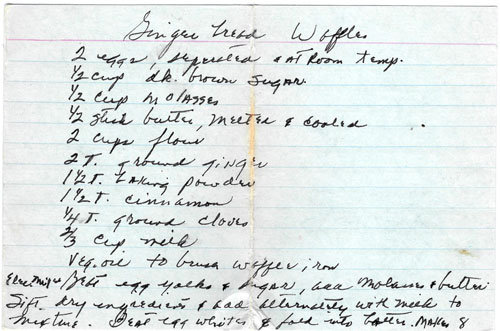 Ginger bread Waffles
2 eggs, seperated & at Room temp.
1/2 cup dk. brown sugar
1/2 cup molasses
1/2 stick butter, melted & cooled
2 cups flour
2 t. ground ginger
1 1/2 t. baking powder
1 1/2 t. cinnamon
1/4 t. ground cloves
2/3 cup milk
Veg. oil to brush waffle iron
Beat egg yolks & sugar, add molasses & butter.
Sift dry ingredients & add alternately with milk to
mixture. Beat egg whites & fold into batter. Makes 8